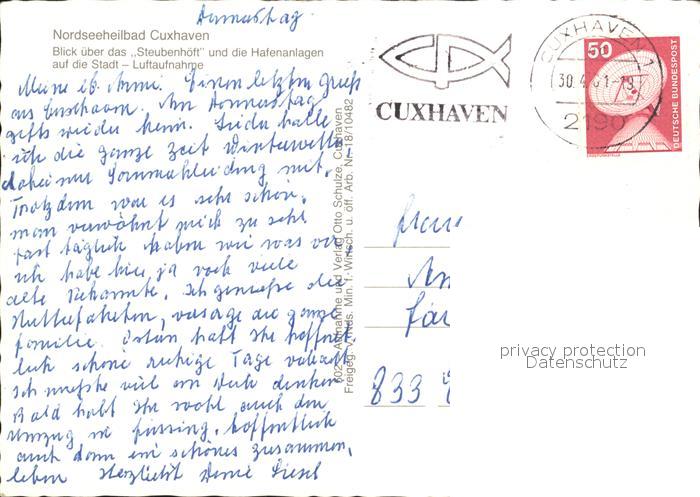 Donnerstag.
Nordseeheilbad Cuxhaven
Blick über das „Steubenhöft" und die Hafenanlagen
auf die Stadt – Luftaufnahme
Meine lb. Einen letzten Gruß
aus Am Donnerstag
gehts wieder heim. Leider hatte
ich die ganze Zeit Winterwetter
daheim Sommerkleidung mit.
Trotzdem war es sehr schön.
man verwöhnt mich zu sehr
fast täglich haben wir was vor
ich habe hier ja noch viele
alte Bekannte. Ich genieße die
versorge die ganze
Familie. Ostern habt Ihr hoffent
lich schöne ruhige Tage verlebt.
Ich mußte viel an denken
Bald habt Ihr wohl auch den
Umzug in hoffentlich
auch dann ein schönes zusammen,
leben Herzlichst Deine Liesel
502 Aufnahme und Verlag Otto Schulze, Cuxhaven
Freigeg. Nds. Min. f. Wirtsch. u. öff. Arb. Nr. 18/10482
CUXHAVEN
CUXHAVEN 1
2190
50
DEUTSCHE BUNDESPOST
Frau
An
833
privacy protection
Datenschutz